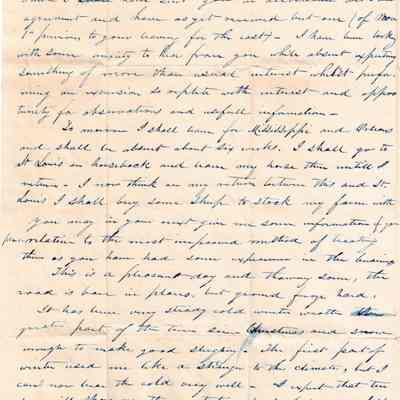 agreement and have as yet received but one (of Nov
1st previous to your leaving for the east) - I have been looking
with some anxiety to hear from you while absent expecting
something of more than usual interest whilst perfor
ming an excursion so replete with interest and oppor
tunity for observations and usefull information -
To morrow I shall leave for Mississippi and Orleans
and shall be absent about six weeks. I shall go to
St Louis on horseback and leave my horse there untill I
return - I now think on my return between this and St.
Louis I shall buy some Sheep to stock my farm with
you may in your next give me some information if you
relative to the most improved method of treating
them as you have had some experience in the business
This is a pleasant day and thawing some, the
road is bare in places, but ground froze hard.
It has been very steady cold winter weather
great part of the time since Christmas and snow
enough to make good sleighing - The first part of
winter used me like a stranger to the climate, but I
can now bear the cold very well - I expect that ten